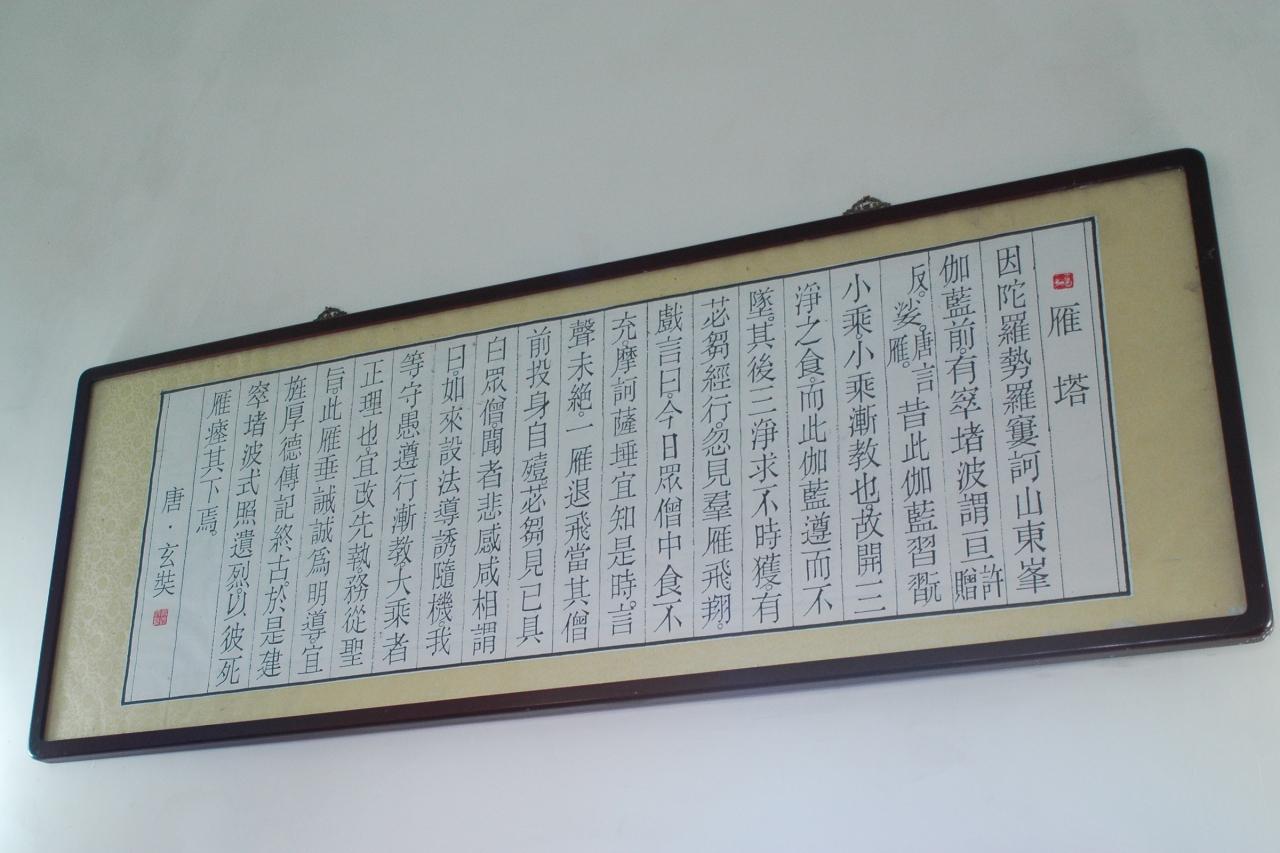 雁塔
因陀羅勢羅窶訶山東峯
伽藍前。有窣堵波謂亘許贈
反。娑。唐言雁。昔此伽藍習翫
小乘。小乘漸教也。故開三
淨之食。而此伽藍遵而不
墜。其後三淨求不時獲。有
苾芻經行。忽見羣雁飛翔。
戲言曰。今日眾僧中食不
充。摩訶薩埵宜知是時。言
聲未絶。一雁退飛當其僧
前投身自殪。苾芻見已具
白眾僧。聞者悲感咸相謂
曰。如來設法導誘隨機。我
等守愚遵行漸教。大乘者
正理也。宜改先執。務從聖
旨。此雁垂誡誠為明導。宜
旌厚德傳記終古。於是建
窣堵波式照遺烈。以彼死
雁瘞其下焉。
唐·玄奘